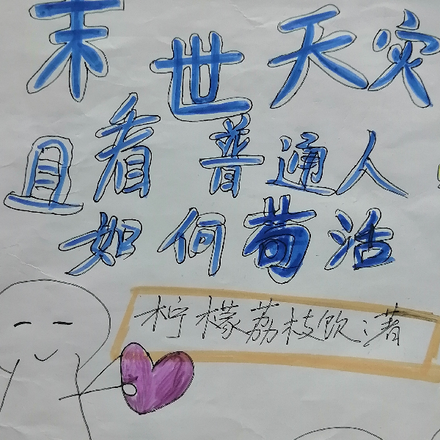 末世天灾
且看普通人
如何苟活
柠檬荔枝饮:著